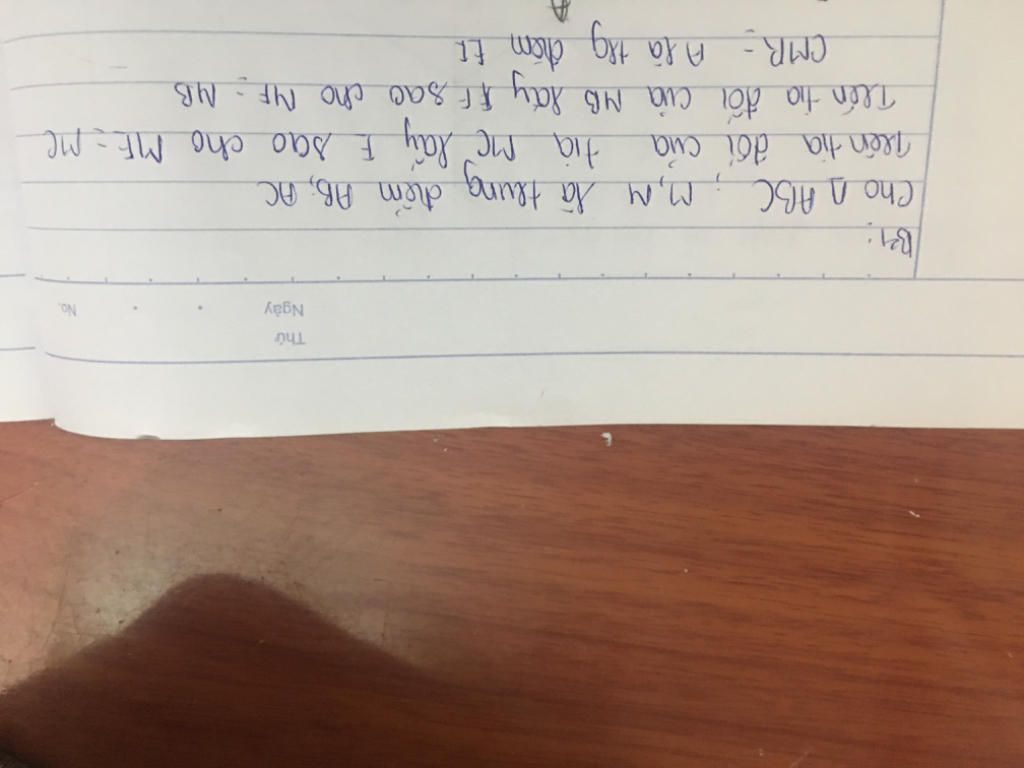 Thứ
Ngày
No.
B1:
Cho Δ ABC ; M, N là trung điểm AB, AC
Trên tia đối của tia MC lấy E sao cho ME = MC
Trên tia đối của NB lấy F sao cho NF = NB
CMR = A là trg điểm EF
A